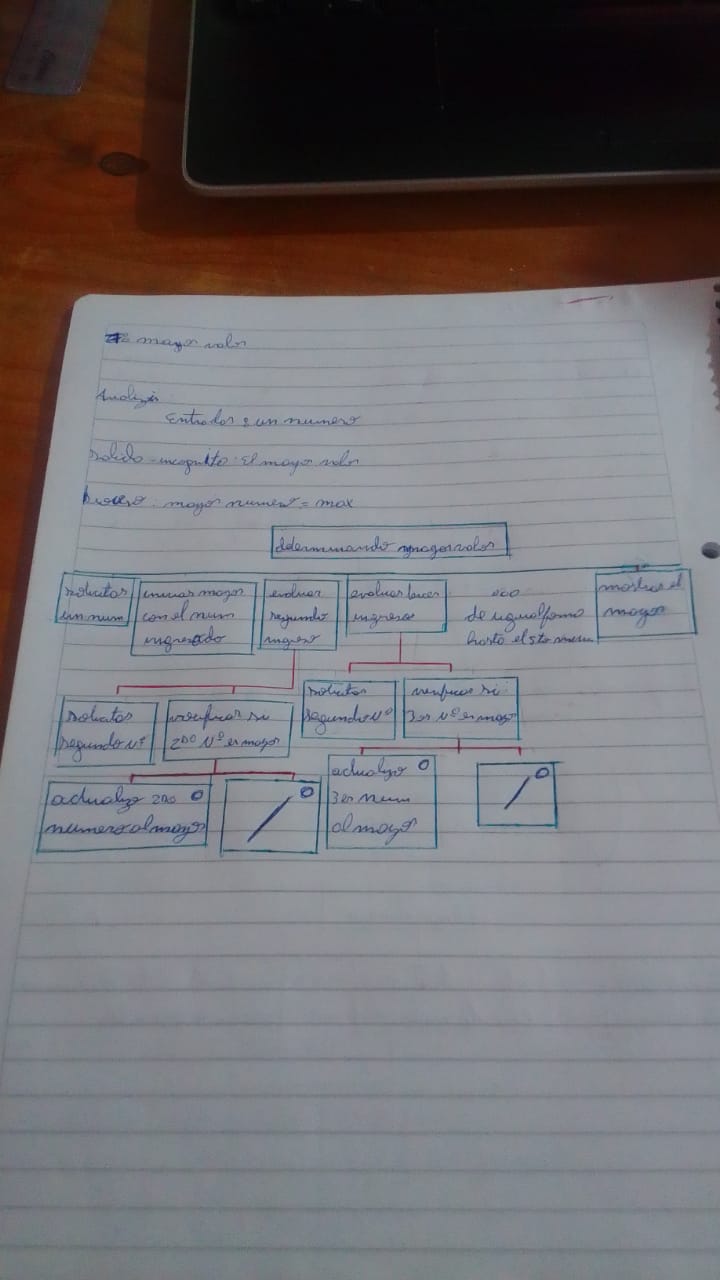 mayor valor
Analizis
Entrada: un numero
Salida - incognita: El mayor valor
Proceso: mayor numero = max
determinando mayor valor
solicitar
un num
iniciar mayor
con el num
ingresado
evaluar
segundo
ingreso
evaluar tercer
ingreso
ooo
de igual forma
hasta el 5to num
mostrar el
mayor
solicitar
segundo Nº
verificar si
2DO Nº es mayor
solicitar
segundo Nº
verificar si
3er Nº es mayor
actualizo 2DO O
numero al mayor
O
actualizo O
3er num
al mayor
O